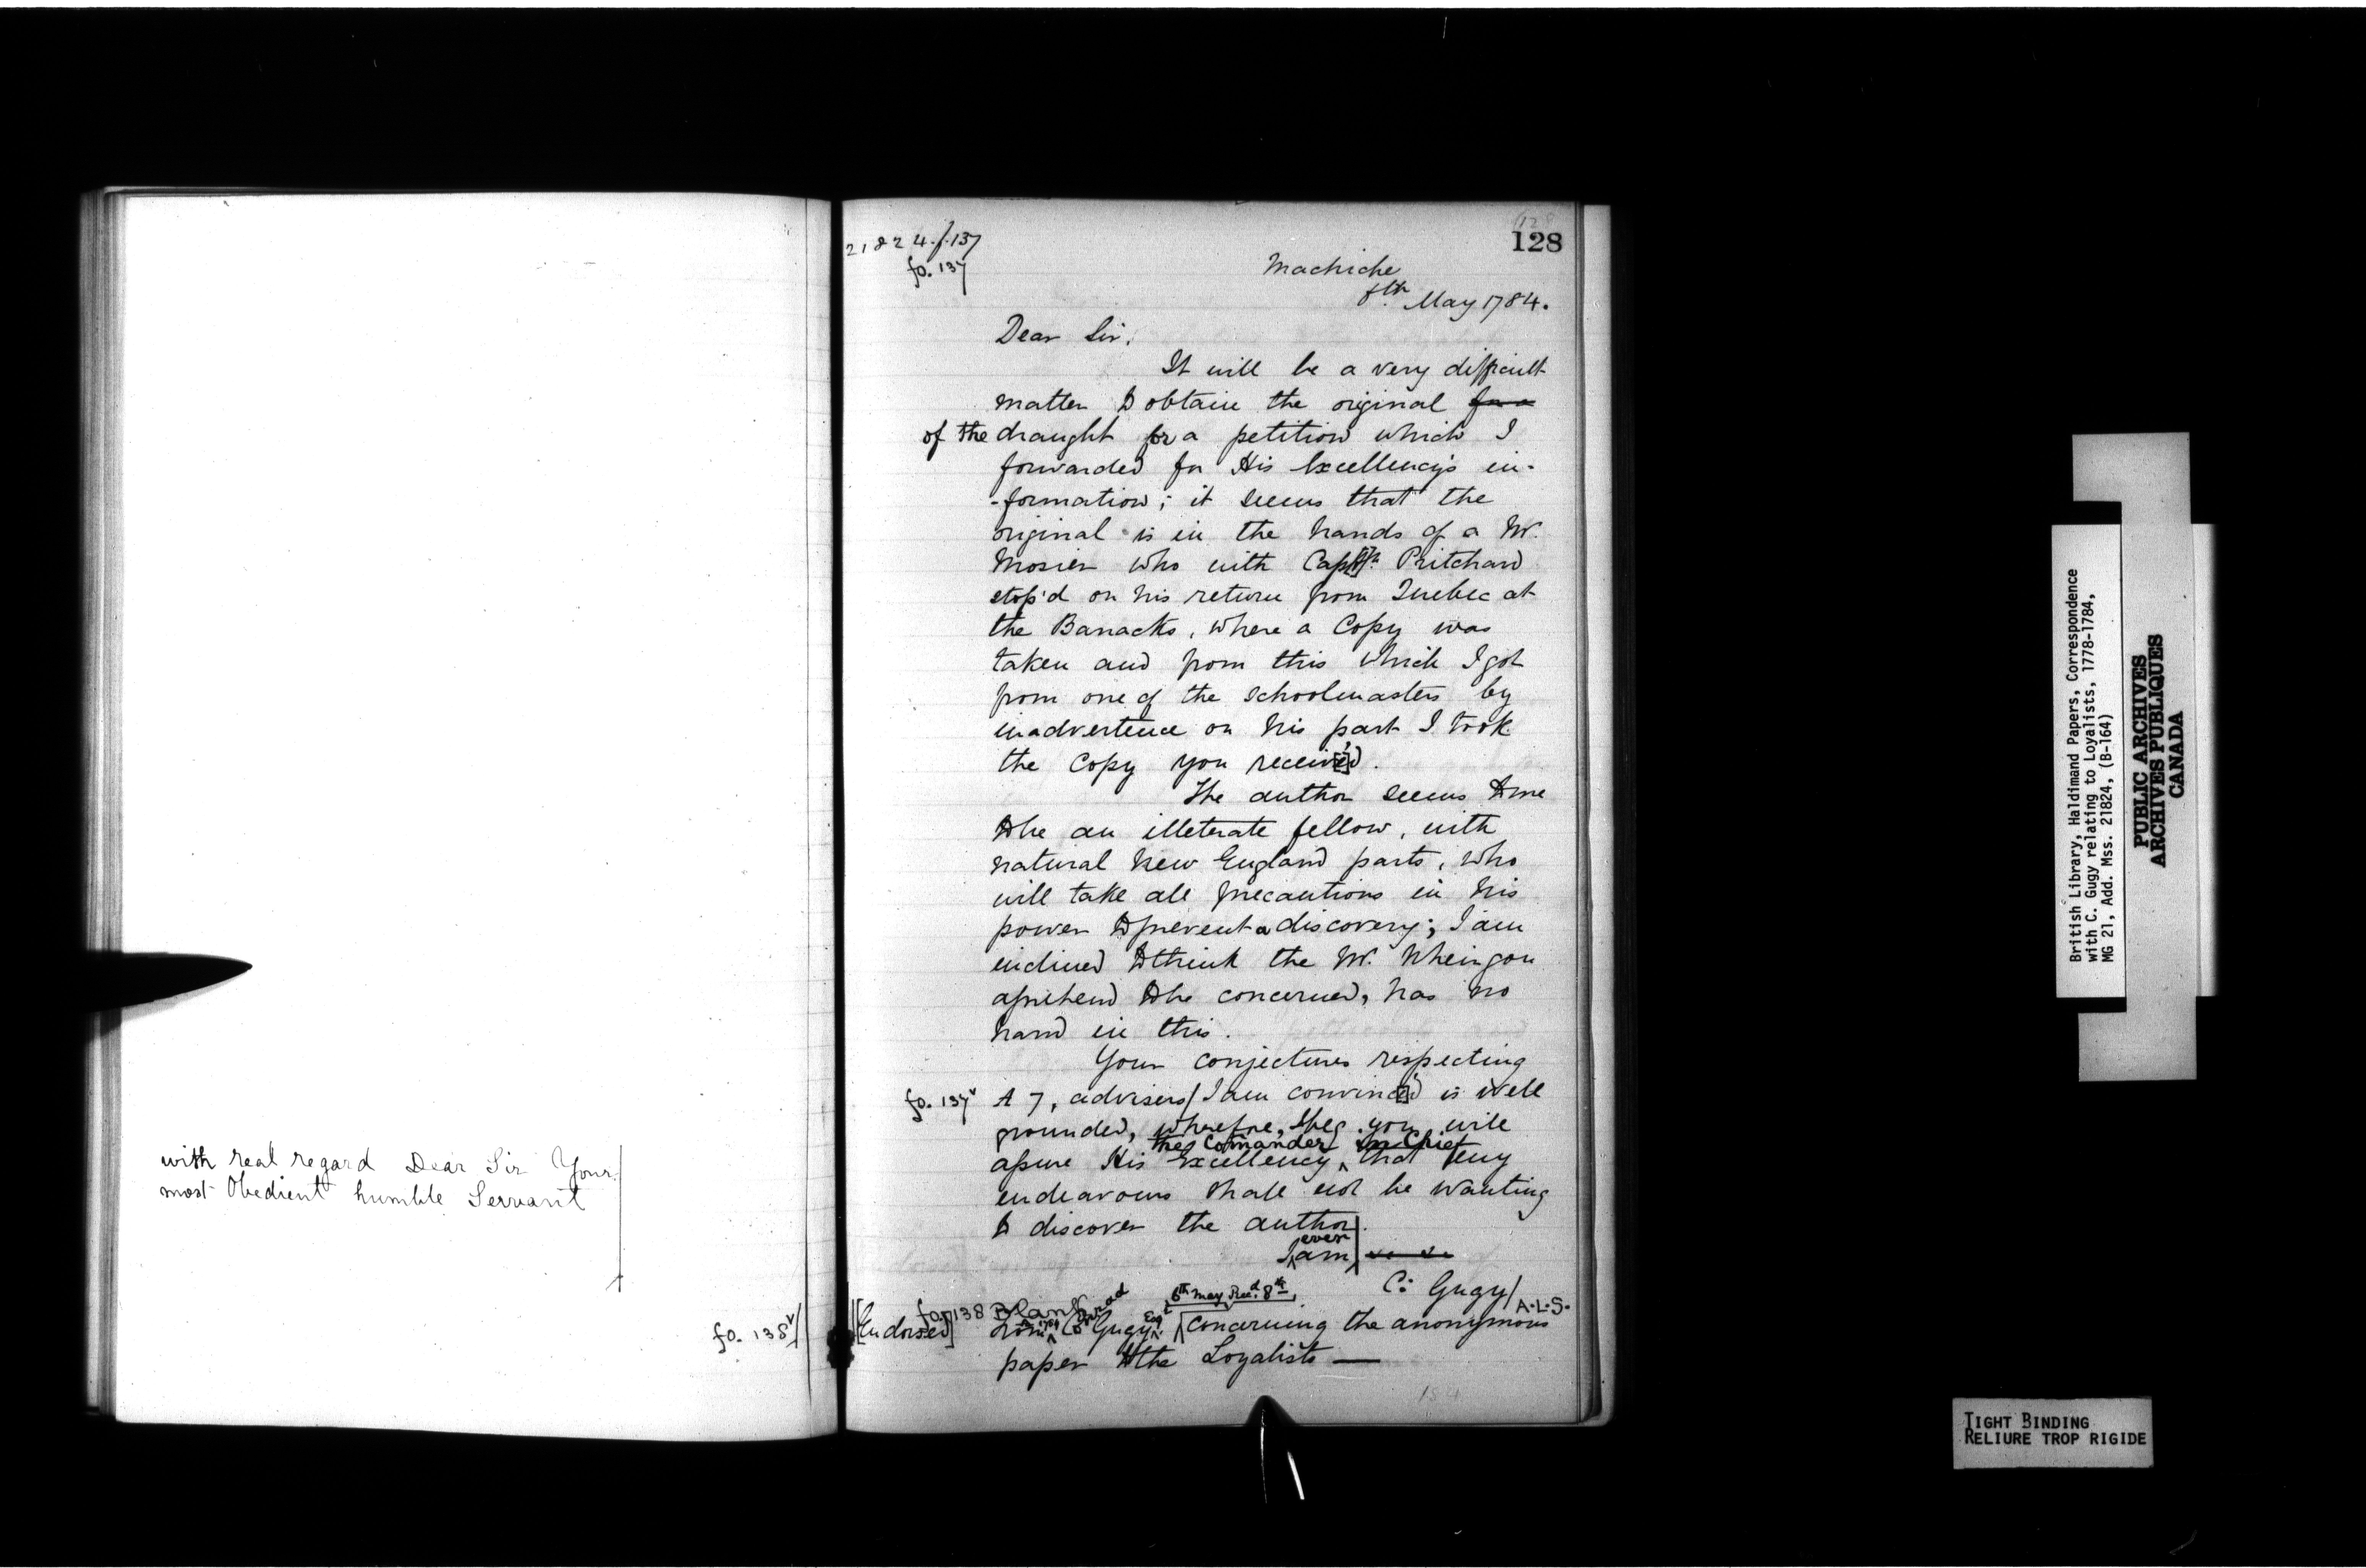 with real regard Dear Sir Your
most Obedient humble Servant
fo. 138v
21824.f.137
fo. 137
128
Machiche
8th May 1784.
Dear Sir,
It will be a very difficult
matter to obtain the original
of the draught for a petition which I
forwarded for His Excellency's in-
-formation; it seems that the
original is in the hands of a Mr.
Mosier who with Capt. Pritchard
stop'd on his return from Quebec at
the Barracks, where a Copy was
taken and from this which I got
from one of the schoolmasters by
inadvertence on his part I took
the Copy you receiv'd.
The author seems to me
to be an illeterate fellow, with
natural New England parts, who
will take all precautions in his
power to prevent a discovery; I am
inclined to think the Mr. Whein you
aprehend to be concerned, has no
hand in this.
Your conjectures respecting
fo. 137v advisers I am convinc'd is well
grounded, wherefore, I beg you will
the Comander in Chief
assure His Excellency, that my
endeavours shall not be wanting
to discover the author.
ever
I am
C: Gugy/
A.L.S.
fo. 138 Blank
6th May Recd. 8th
[Endorsed] From Conrad Gugy Esqr concerning the anonymous
paper to the Loyalists —
British Library, Haldimand Papers, Correspondence
with C. Gugy relating to Loyalists, 1778-1784,
MG 21, Add. Mss. 21824, (B-164)
PUBLIC ARCHIVES
ARCHIVES PUBLIQUES
CANADA
TIGHT BINDING
RELIURE TROP RIGIDE